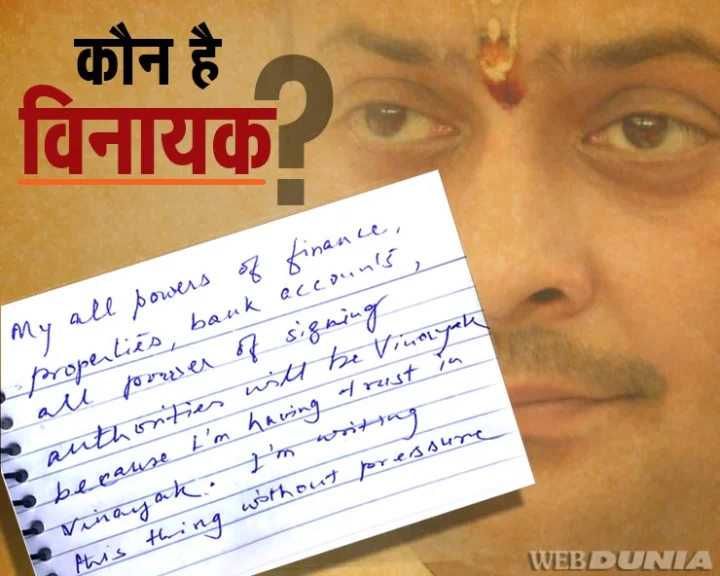 कौन है
विनायक?
My all powers of finance,
properties, bank accounts,
all power of signing
authorities will be Vinayak
because i'm having trust in
Vinayak. I'm writing
this thing without pressure
WEBDUNIA